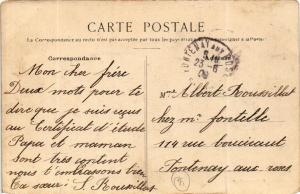 CARTE POSTALE
La Correspondance au recto n'est pas acceptée par tous les pays étrangers
Correspondance
FONTENAY AUX ROSES
23 -6
09
Mon cher frère
Deux mots pour te
dire que je suis reçus
au Certificat d'étude
Papa et maman
sont très content
nous t'embrassons bien
Ta sœur: S. Roussillat
Albert Roussillat
chez m. fontille
114 rue boucicaut
Fontenay aux roses